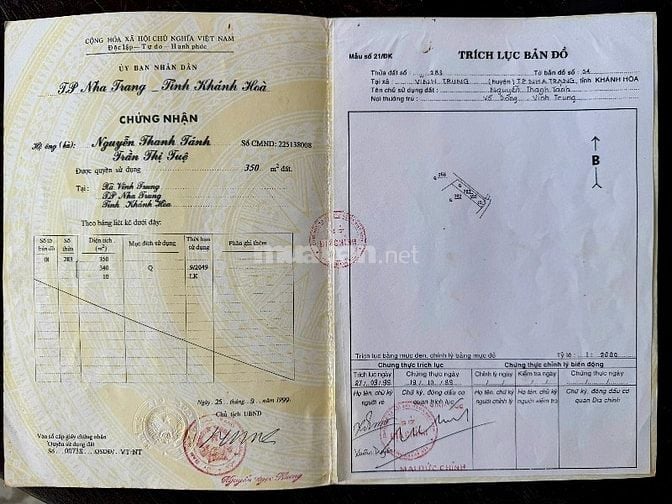 CỘNG HÒA XÃ HỘI CHỦ NGHĨA VIỆT NAM
Độc lập - Tự do - Hạnh phúc
ỦY BAN NHÂN DÂN
T.P Nha Trang Tỉnh Khánh Hoà
CHỨNG NHẬN
Hộ ông (bà): Nguyễn Thanh Tánh Số CMND: 225138008
Trần Thị Tuệ
Được quyền sử dụng 350 m² đất.
Tại: Xã Vĩnh Trung
T.P Nha Trang
Tỉnh Khánh Hòa
Theo bảng liệt kê dưới đây:
Số tờ bản đồ Số thửa Diện tích (m²) Mục đích sử dụng Thời hạn sử dụng Phần ghi thêm
01 283 350
340 Q 9/2049
10 LK
Ngày 25 tháng 9 năm 1999
Chủ tịch UBND
Vào sổ cấp giấy chứng nhận
Quyền sử dụng đất
Số 00738 QSDĐ/ VT-NT
Mẫu số 21/ĐK
TRÍCH LỤC BẢN ĐỒ
Thửa đất số 283 Tờ bản đồ số 01
Tại xã VĨNH TRUNG (huyện) T.P NHA TRANG, tỉnh KHÁNH HÒA
Tên chủ sử dụng đất: Nguyễn Thanh Tánh
Nơi thường trú Võ Vĩnh Trung
B
muaban.net
Trích lục bằng mực đen, chỉnh lý bằng mực đỏ Tỷ lệ 1: 2000
Chứng thực trích lục Chứng thực chỉnh lý biến động
Trích lục ngày Chứng thực ngày Chỉnh lý ngày Kiểm tra ngày Chứng thực ngày
Họ tên, chữ ký người vẽ Chữ ký, đóng dấu cơ quan trích lục Họ tên, chữ ký người chỉnh lý Họ tên, chữ ký người kiểm tra Chữ ký, đóng dấu cơ quan Địa chính
MAI ĐỨC CHÍNH